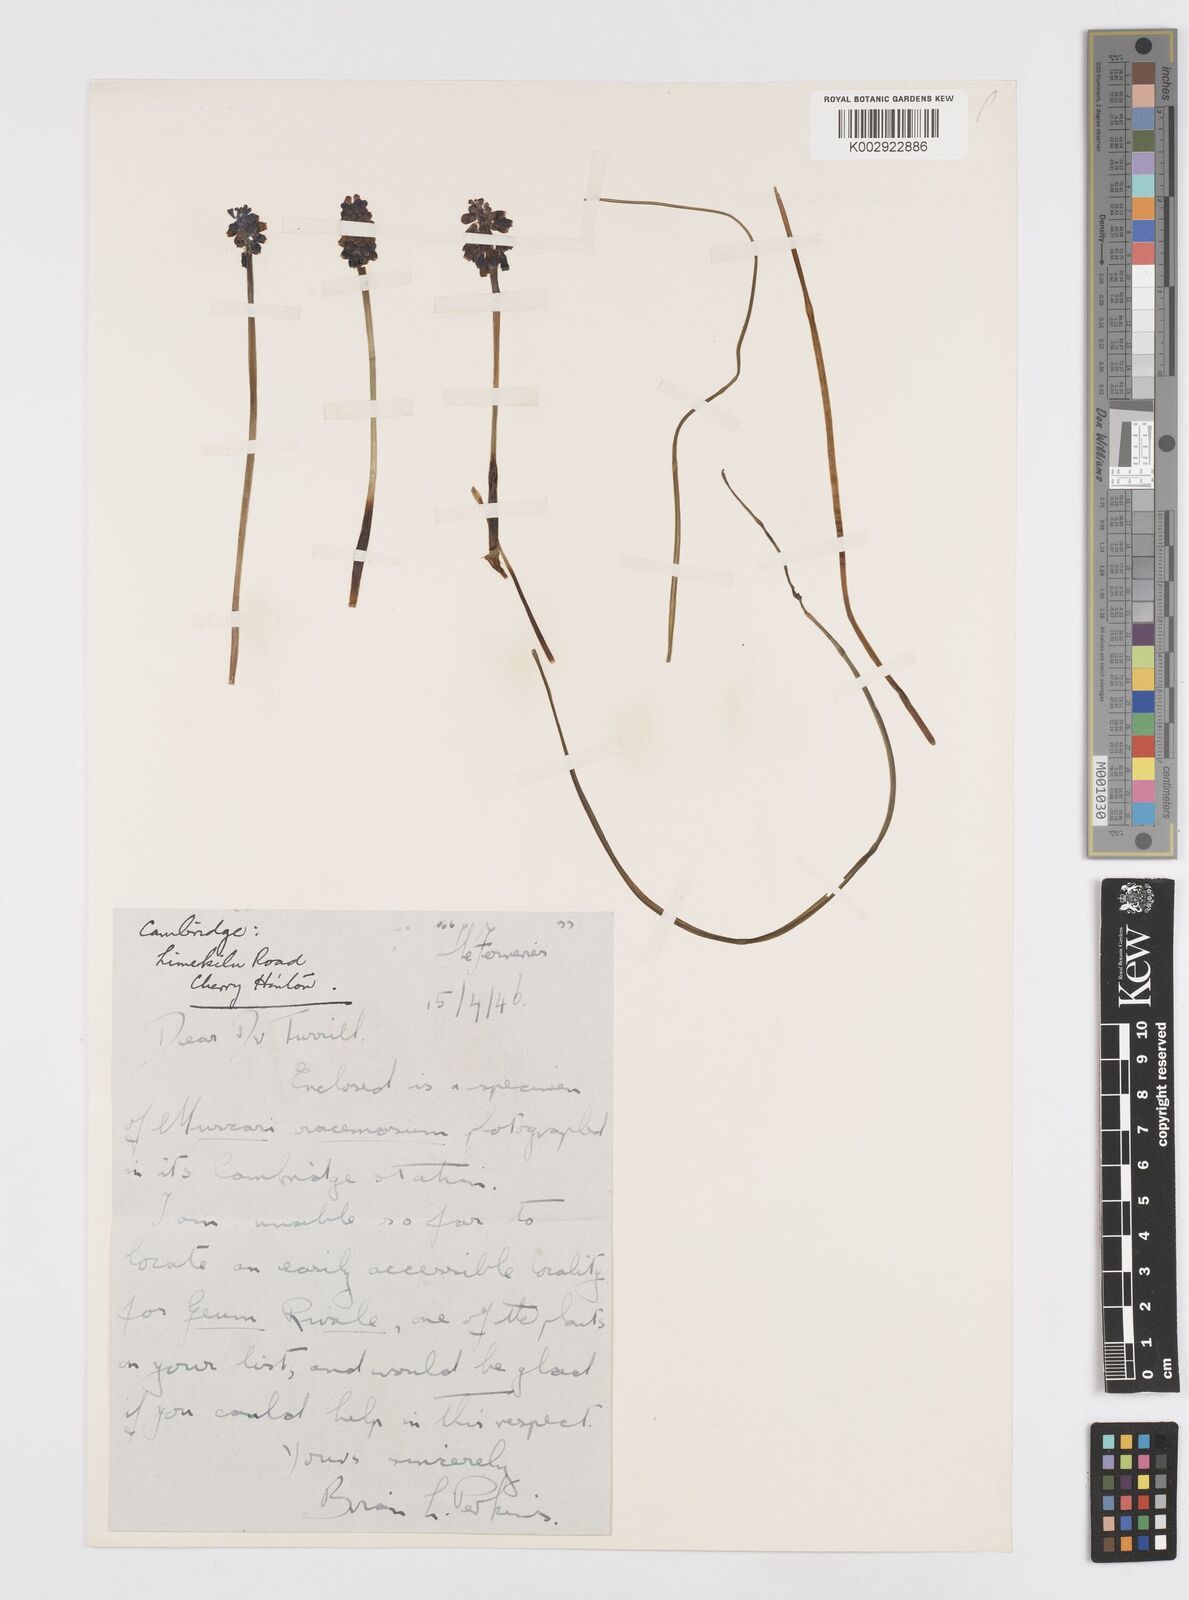 ROYAL BOTANIC GARDENS KEW
K002922886
Cambridge:
Limekiln Road
Cherry Hinton.
15/4/46.
Dear Dr Turrill.
Enclosed is a specimen
of Muscari racemosum photographed
in its Cambridge station.
I am unable so far to
locate an easily accessible locality
for Geum Rivale, one of the plants
on your list, and would be glad
if you could help in this respect.
Yours sincerely
Brian L. Perkins.
inches
centimeters
Density
Don Williams
M001030
Kew
Royal Botanic Gardens
copyright reserved
0 1 2 3 4 5 6 7 8 9 10
cm